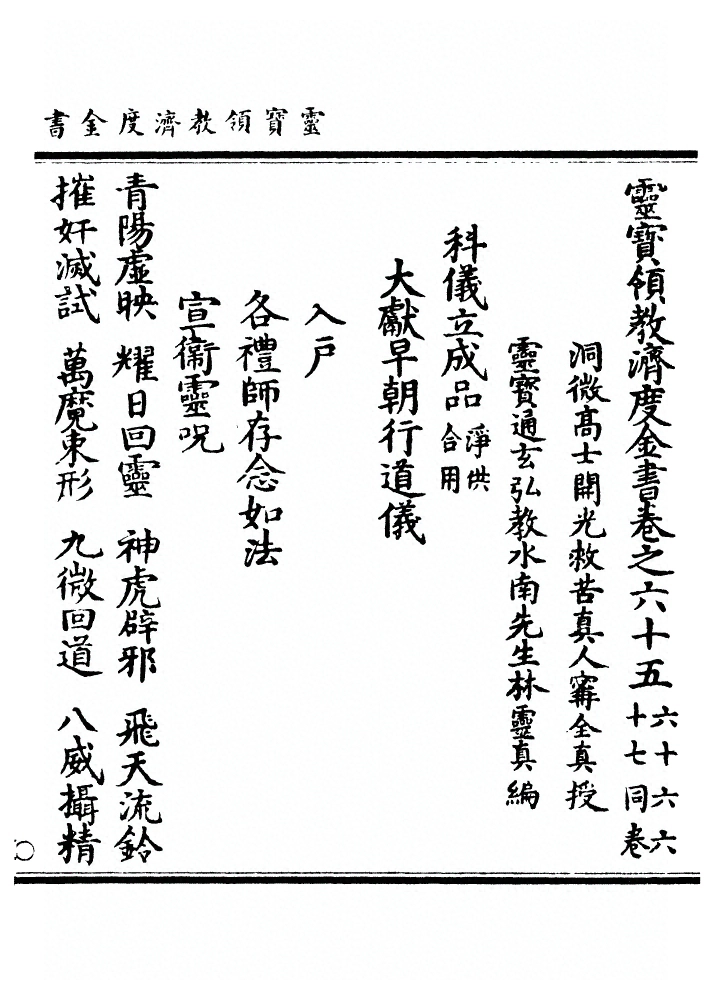 靈寶領教濟度金書
靈寶領教濟度金書卷之六十五六十六六十七同卷
洞微高士開光救苦真人寗全真授
靈寶通玄弘教水南先生林靈真編
科儀立成品淨供合用
大獻早朝行道儀
入戶
各禮師存念如法
宣衛靈呪
青陽虛映 耀日回靈 神虎辟邪 飛天流鈴
摧奸滅試 萬魔束形 九微回道 八威攝精